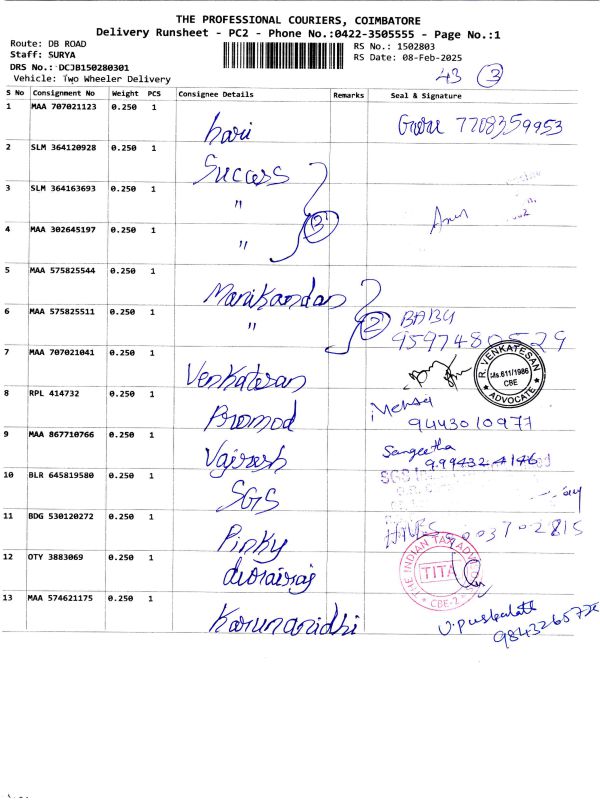 THE PROFESSIONAL COURIERS, COIMBATORE
Delivery Runsheet - PC2 - Phone No.:0422-3505555 - Page No.:1
Route: DB ROAD RS No.: 1502803
Staff: SURYA RS Date: 08-Feb-2025
DRS No.: DCJB150280301
Vehicle: Two Wheeler Delivery 43 3
S No Consignment No Weight PCS Consignee Details Remarks Seal & Signature
1 MAA 707021123 0.250 1 hari 7708359953
2 SLM 364120928 0.250 1 Success
3 SLM 364163693 0.250 1 "
4 MAA 302645197 0.250 1 " 3
5 MAA 575825544 0.250 1 Manikandan
6 MAA 575825511 0.250 1 " 2 BABU
9597480529
7 MAA 707021041 0.250 1 Venkatesan R. VENKATESAN Ms.611/1986 CBE ADVOCATE
8 RPL 414732 0.250 1 Promod
9443010977
9 MAA 867710766 0.250 1 Sangeetha
9.99432-4146
10 BLR 645819580 0.250 1 SGS
11 BDG 530120272 0.250 1 Pinky
12 OTY 3883069 0.250 1 duorairaj TITA CBE-2
13 MAA 574621175 0.250 1 Karunanidhi